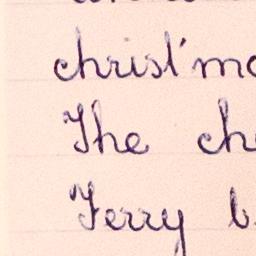 christ'ma
The che
Terry b